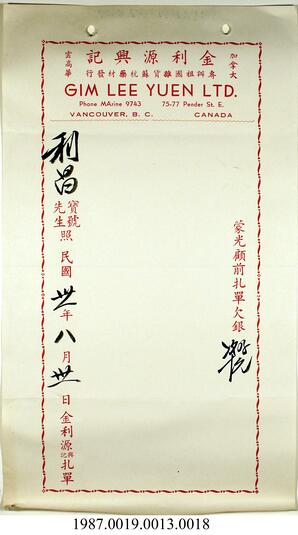 加拿大
記興源利金
雲高華
行發材藥杭蘇貨雜國祖辦專
GIM LEE YUEN LTD.
Phone MArine 9743 75-77 Pender St. E.
VANCOUVER, B. C. CANADA
蒙光顧前扎單欠銀
利昌
寶號
先生
照 民國 卅 年 八 月 卅 日 金利源興記扎單
1987.0019.0013.0018